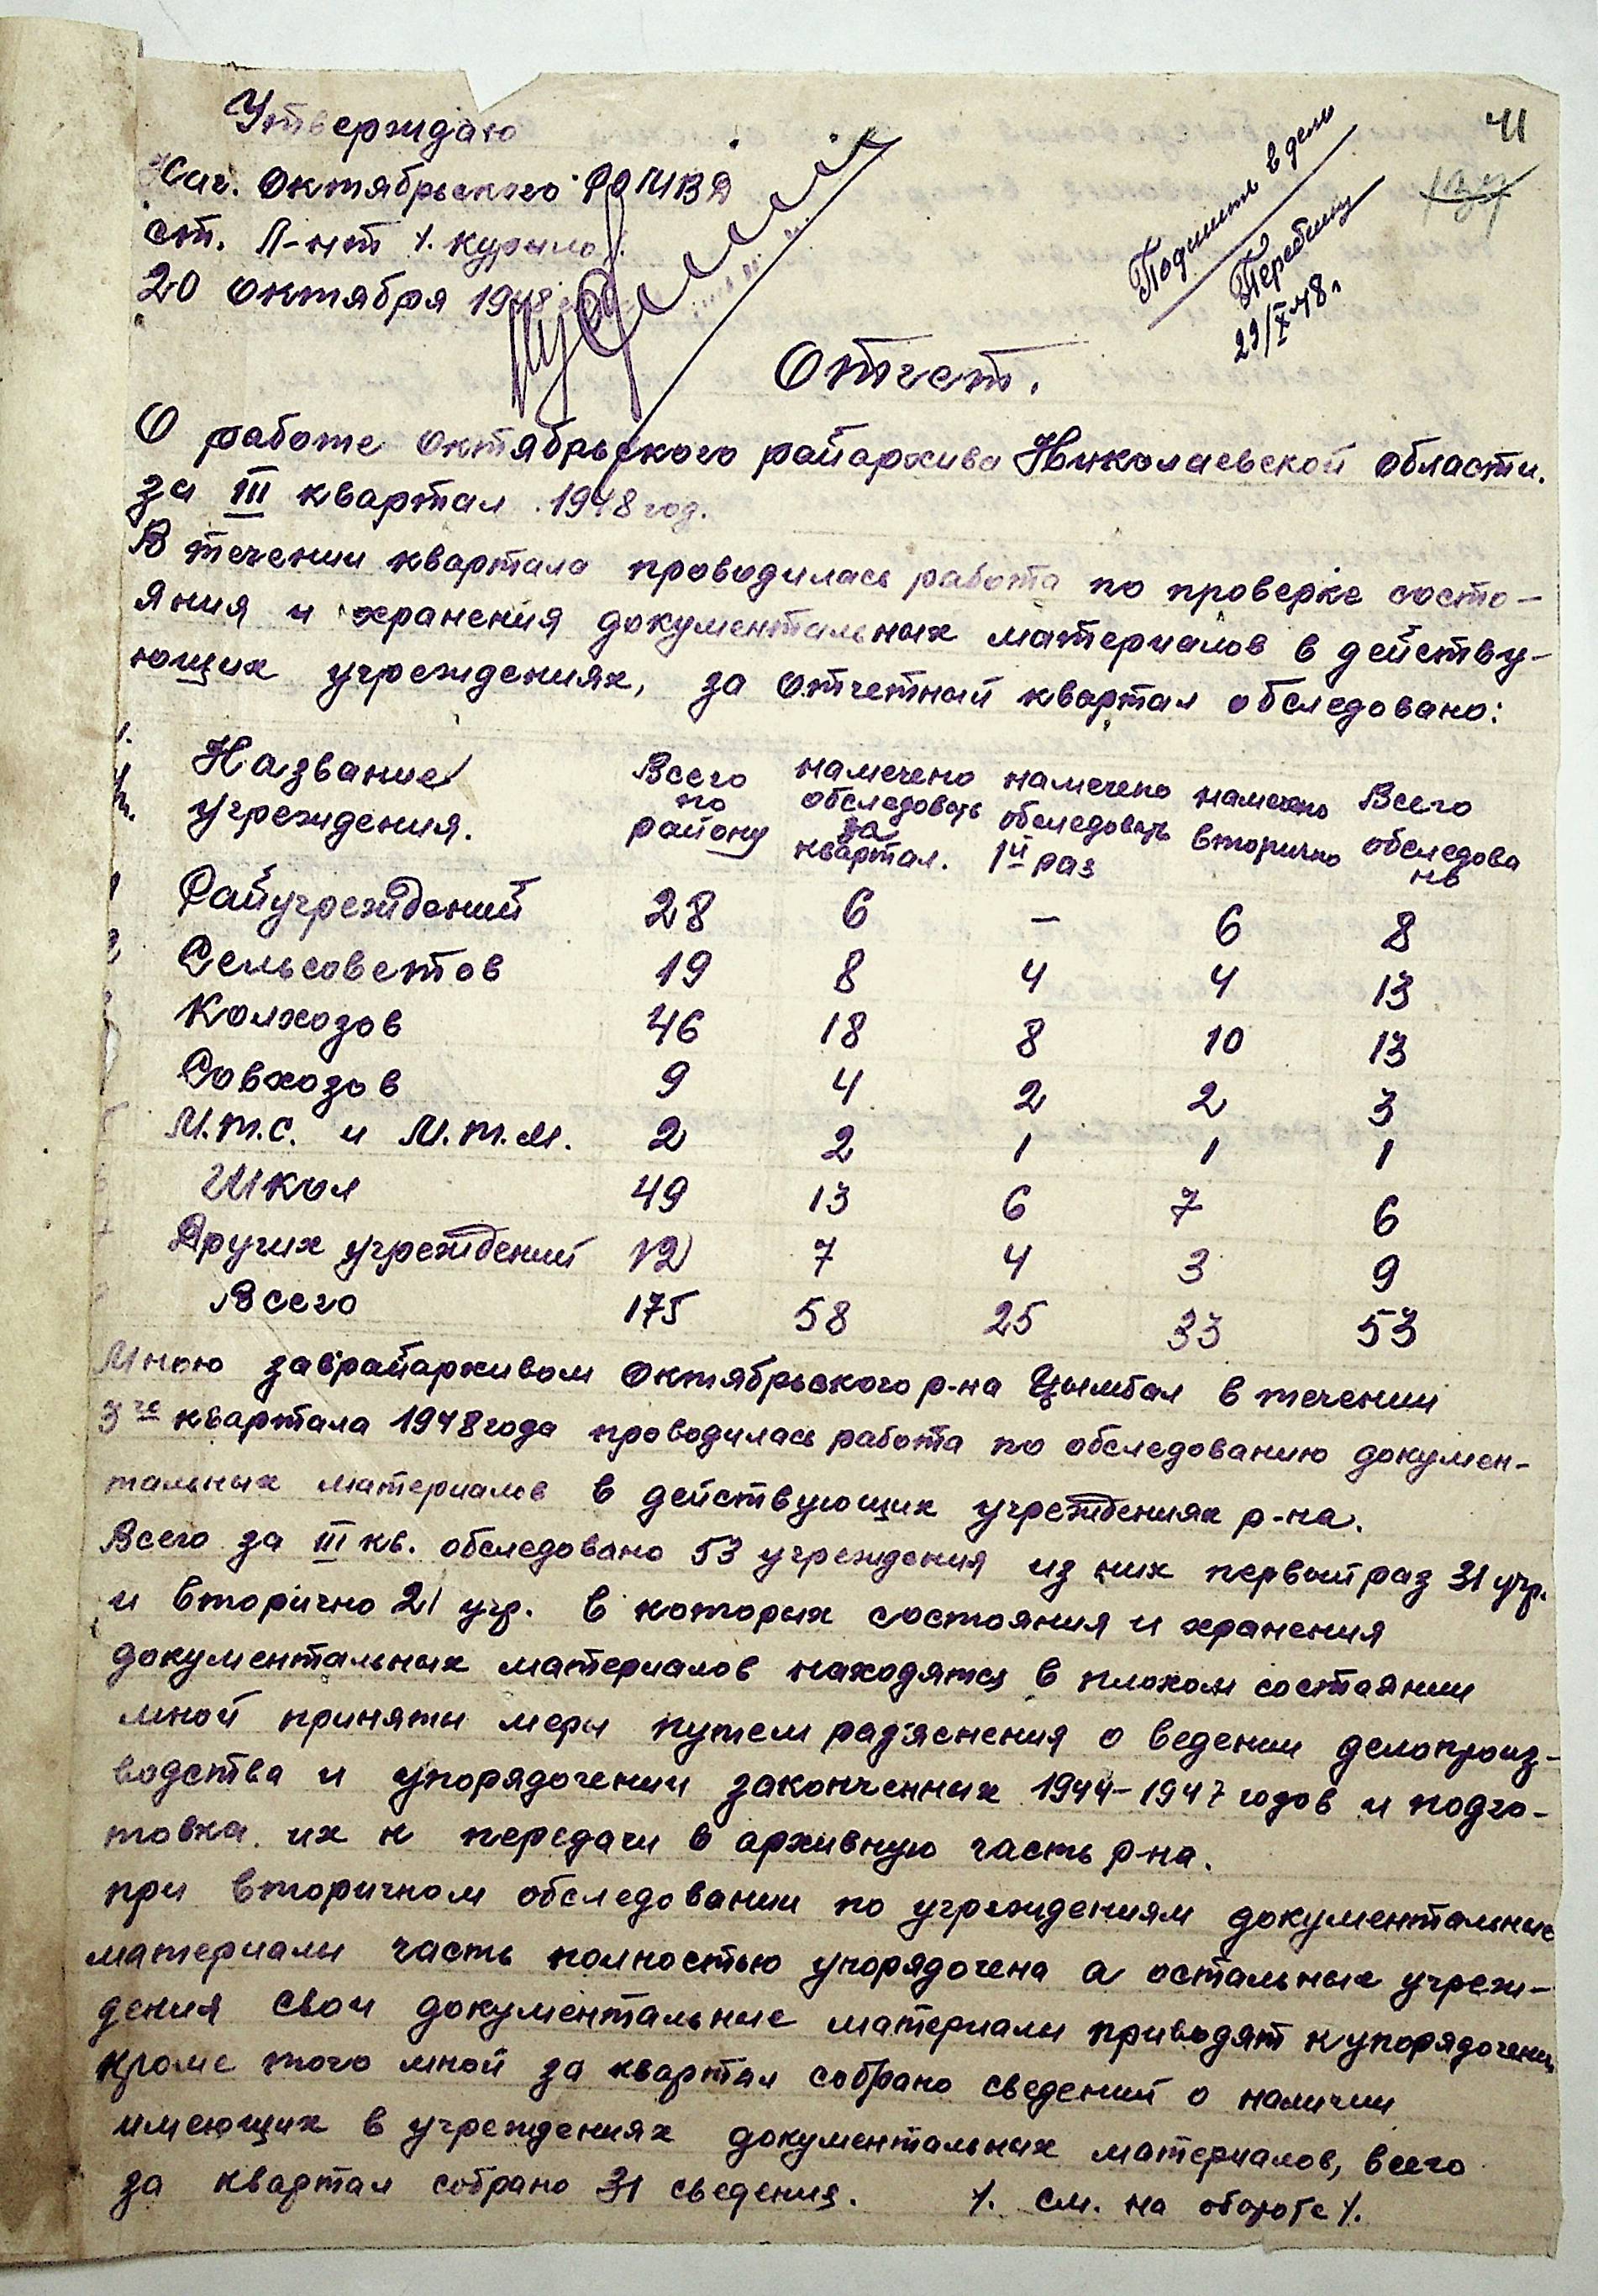 41
Утверждаю
Нач. Октябрьского РО МВД
ст. Л-нт /. Курило /.
20 Октября 1948
Подшить в дело
29/X 48г
Отчет.
О работе Октябрьского райархива Николаевской области.
за III квартал 1948 год.
В течении квартала проводилась работа по проверке состо-
яния и хранения документальных материалов в действу-
ющих учреждениях, за отчетный квартал обследовано:
Название учреждения. Всего по району намечено обследовать за квартал. намечено обследовать 1й раз намечено вторично Всего обследовано
1 Райучреждений 28 6 — 6 8
2 Сельсоветов 19 8 4 4 13
Колхозов 46 18 8 10 13
Совхозов 9 4 2 2 3
М.т.с. и М.т.м. 2 2 1 1 1
Школ 49 13 6 7 6
Других учреждений 12 7 4 3 9
Всего 175 58 25 33 53
Мною заврайархивом Октябрьского р-на Цымбал в течении
3го квартала 1948 года проводилась работа по обследованию докумен-
тальных материалов в действующих учреждениях р-на.
Всего за III кв. обследовано 53 учреждения из них первый раз 31 учр.
и вторично 21 учр. в которых состояния и хранения
документальных материалов находятся в плохом состоянии
мной приняты меры путем раз'яснения о ведении делопроиз-
водства и упорядочении законченных 1944-1947 годов и подго-
товка их к передачи в архивную часть р-на.
при вторичном обследовании по учреждениям документальные
материалы часть полностью упорядочена а остальных учреж-
дения свои документальные материалы приводят к упорядочению
кроме того мной за квартал собрано сведений о наличии
имеющих в учреждениях документальных материалов, всего
за квартал собрано 31 сведения. /. см. на обороте /.